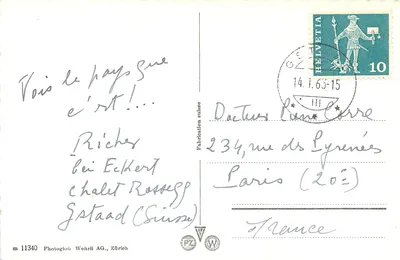 Vois le pays que
c'est!...
Richer
bei Eckert
chalet Rossegg
Gstaad (Suisse)
m 11340 Photoglob Wehrli AG., Zürich
Fabrication suisse
PZ W
HELVETIA
10
14.1.63-15
III
Docteur Pierre Corre
234, rue des Pyrénées
Paris (20e)
France